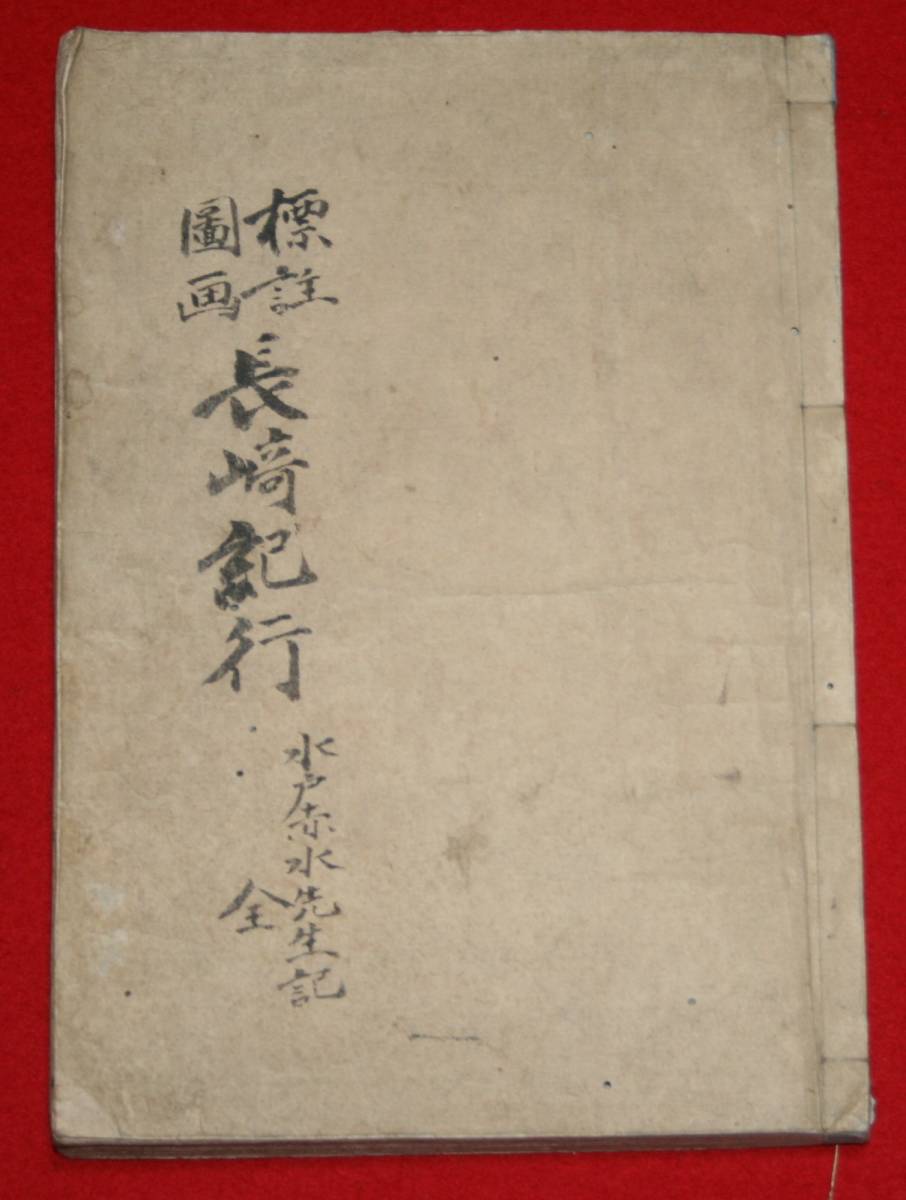 標註
圖画
長崎記行
水戸赤水先生記
全